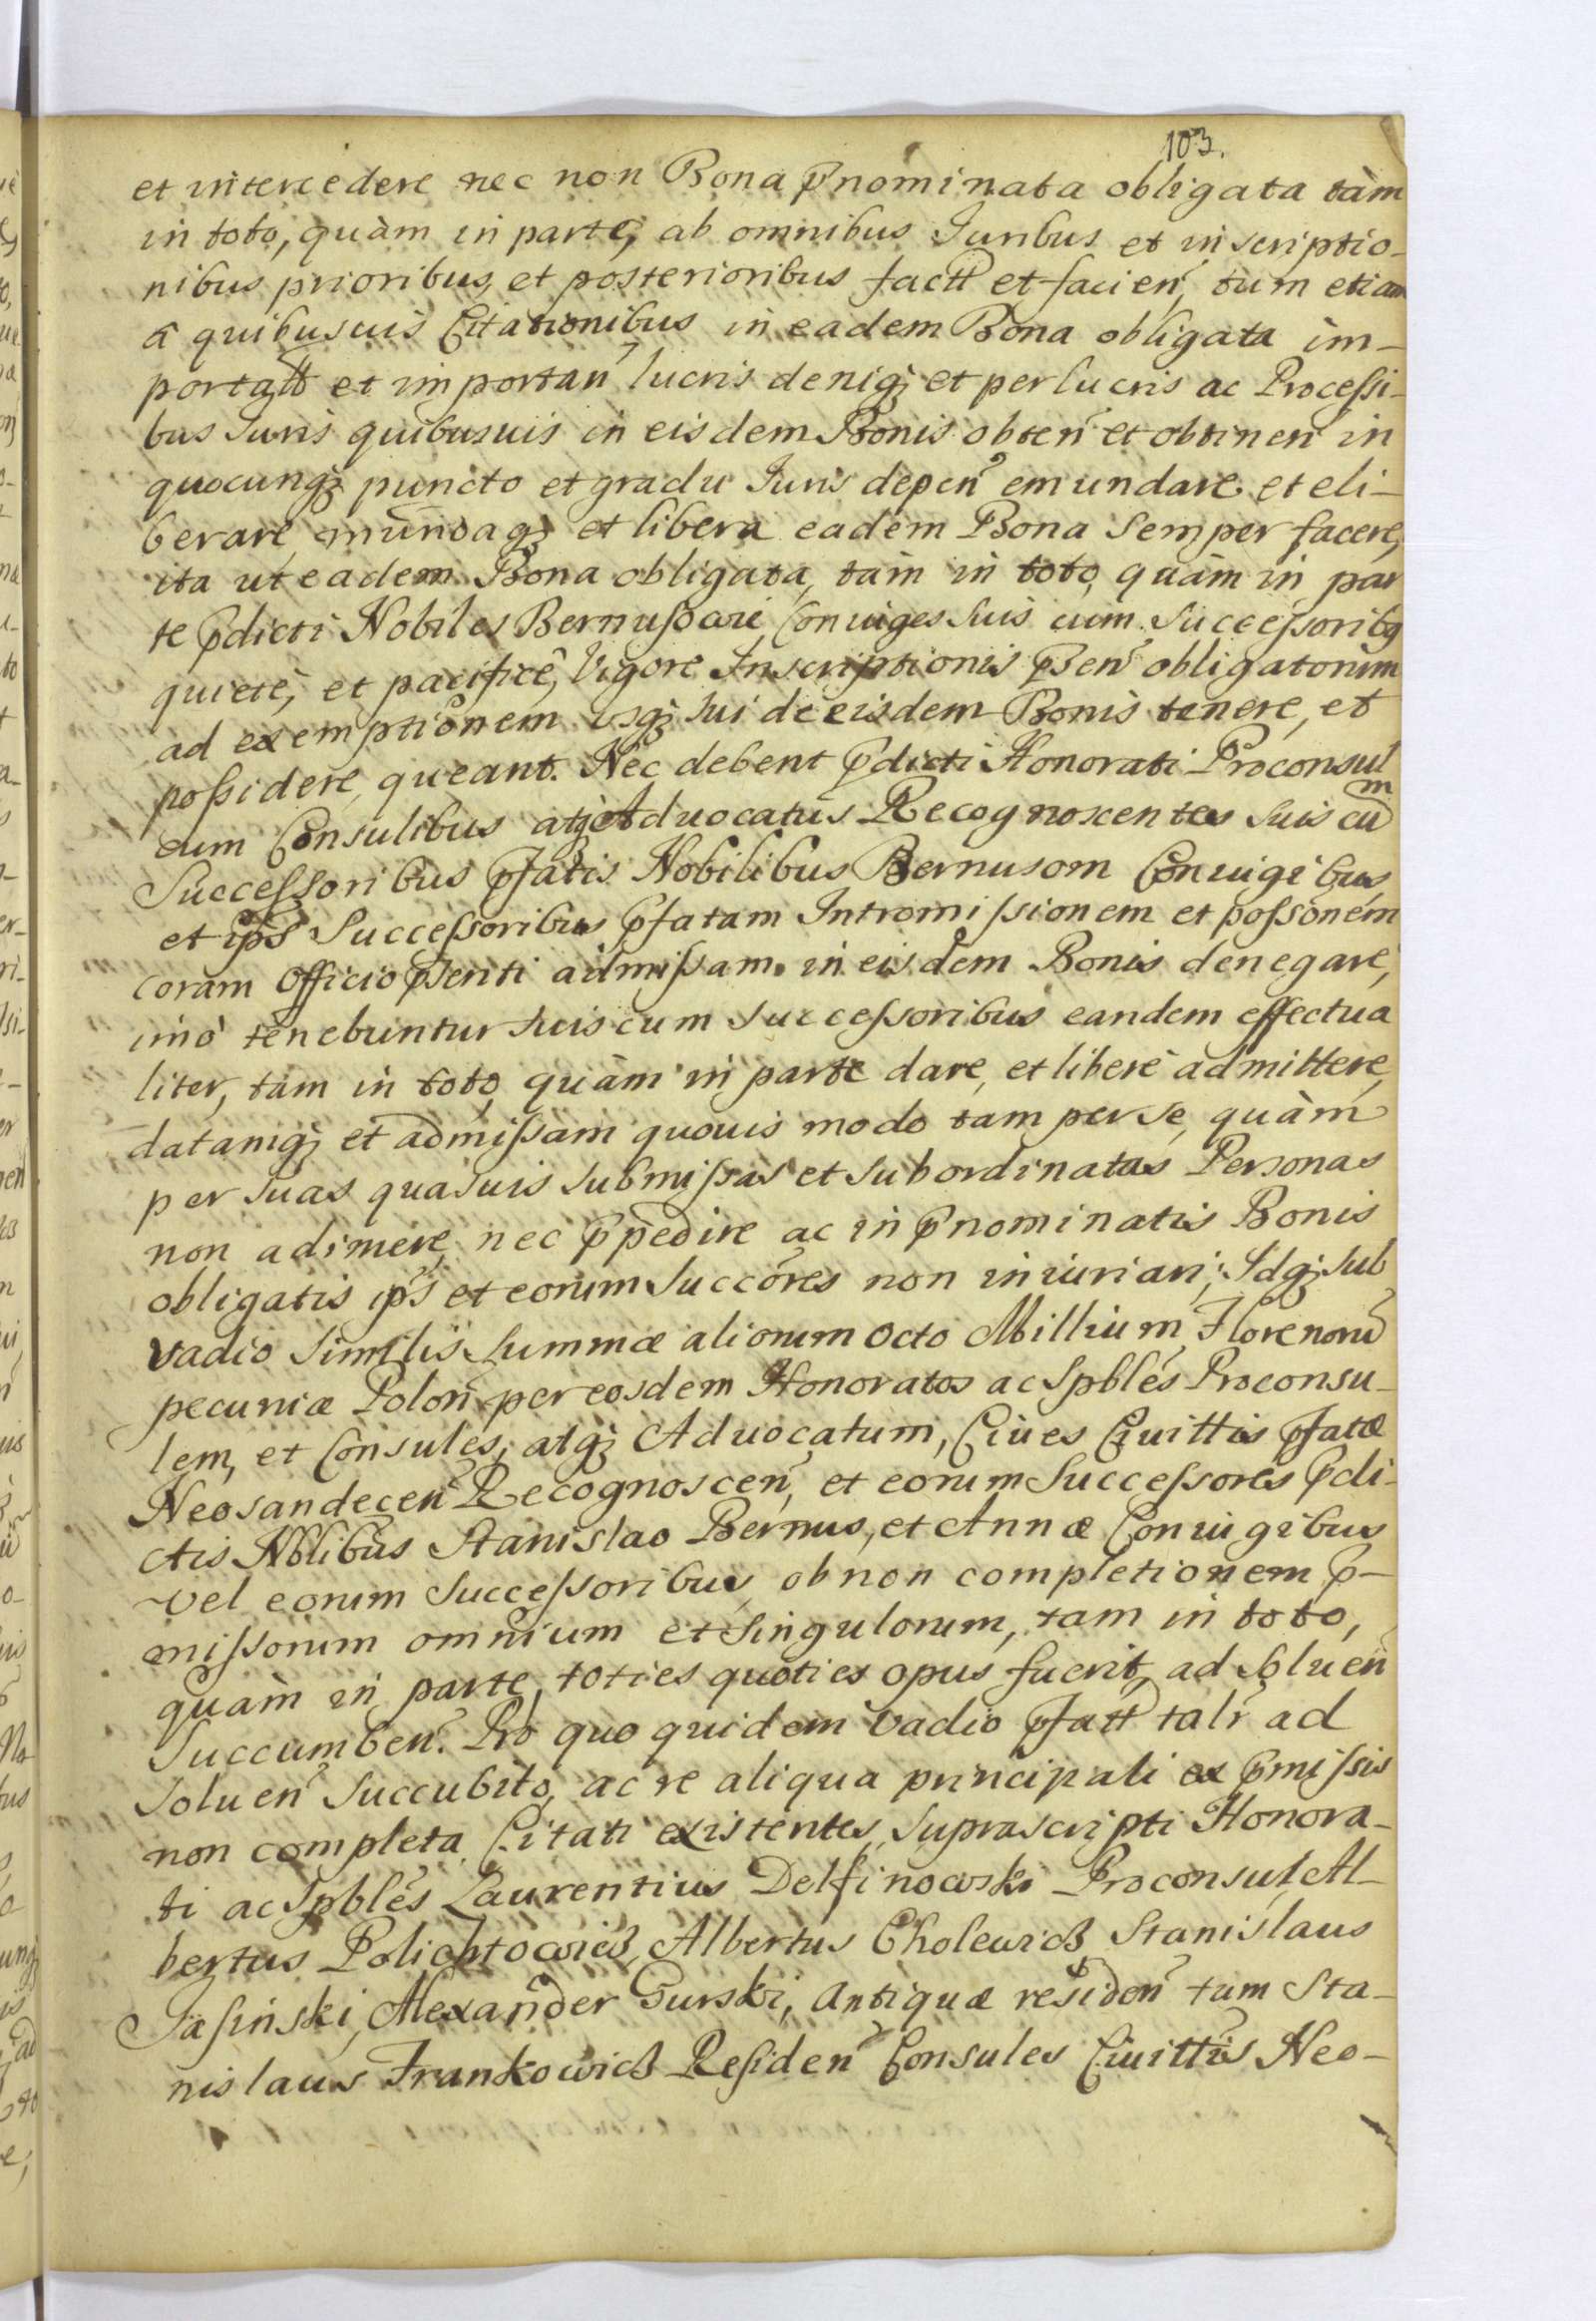 103.
et intercedere nec non Bona p̃nominata obligata tàm
in toto, quàm in parte, ab omnibus Juribus et inscriptio-
nibus prioribus, et posterioribus factt̃ et facien̄, tum etiam
à quibusuis Citationibus in eadem Bona obligata im-
portatt̃ et importan̄ lucris deniq; et perlucris ac Processi-
bus Juris quibusuis in eisdem Bonis obten̄ et obtinen̄ in
quocunq; puncto et gradu Juris depen̄ emundare et eli-
berare mundaq; et libera eadem Bona semper facere,
ita ut eadem Bona obligata, tàm in toto, quàm in par
te p̃dicti Nobiles Bernuszowie Coniuges suis cum Successoribq
quietè, et pacificè, Vigore Inscriptionis p̃sen̄ obligatorium
ad exemptionem usq; sui de eisdem Bonis tenere, et
possidere, queant. Nec debent p̃dicti Honorati Proconsul
cum Consulibus atq; Advocatus Recognoscentes suis cum
Successoribus p̃fatis Nobilibus Bernusom Coniugibus,
et ip̃s Successoribus p̃fatam Intromissionem et possõnem
coram Officio p̃senti admissam in eisdem Bonis denegare,
imò tenebuntur suis cum successoribus eandem effectua
liter, tàm in toto, quàm in parte dare, et liberè admittere,
datamq; et admissam quouis modo tam per se, quàm
per suas quasuis submissas et subordinatas Personas
non adimere, nec p̃pedire ac in p̃nominatis Bonis
obligatis ip̃s et eorum succõres non iniuriari; Idq; sub
vadio similis summæ aliorum octo Millium Florenorũ
pecuniæ Polon̄ per eosdem Honoratos ac Spblẽs Proconsu-
lem, et Consules, atq; Aduocatum, Ciues Ciuittis p̃fatæ
Neosandecen̄ Recognoscen̄, et eorum Successores p̃di-
ctis Nblibus Stanislao Bernus, et Annæ Coniugibus
vel eorum Successoribus, ob non completionem p̃-
missorum omnium et singulorum, tam in toto,
quàm in parte, toties quoties opus fuerit, ad soluen̄
succumben̄. Pro quo quidem vadio p̃fatt̃ talr̃ ad
soluen̄ succubito, ac re aliqua principali ex p̃missis
non completa, Citati existentes, suprascripti Honora-
ti ac Spblẽs Laurentius Delfinowski Proconsul, Al-
bertus Polichtowicz, Albertus Cholewicz, Stanislaus
Jasinski, Alexander Gurski, Antiquæ residen̄ tum Sta-
nislaus Frankowicz Residen̄ Consules Ciuittis Neo-